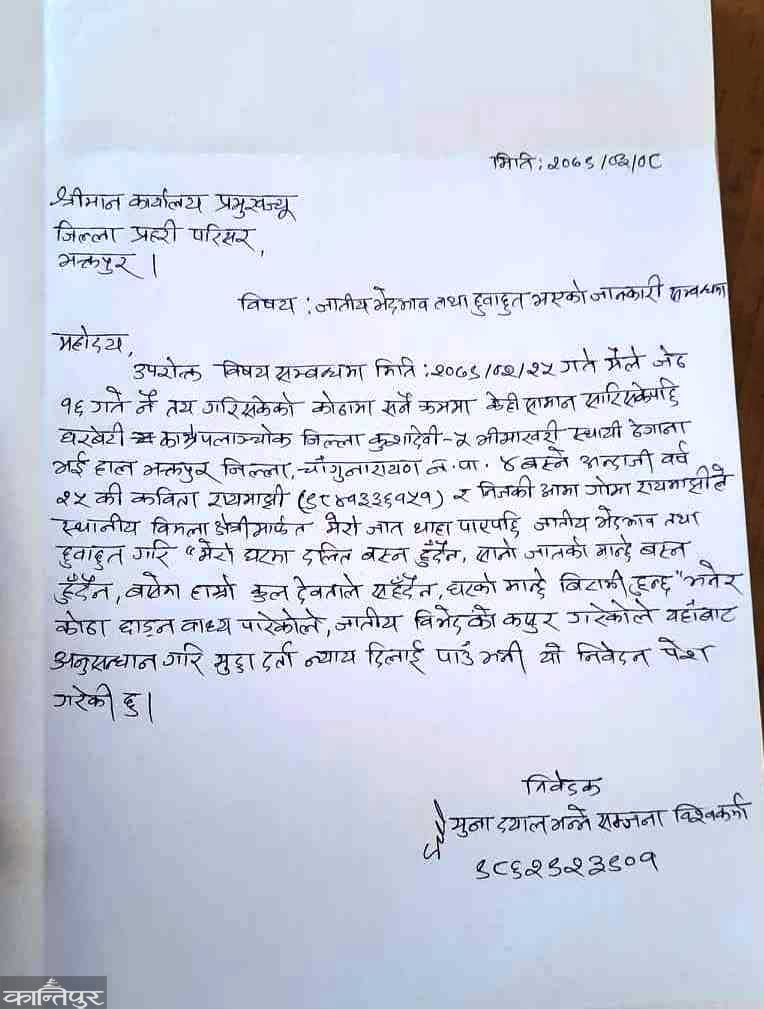 मिति : २०७९/०३/०८
श्रीमान कार्यालय प्रमुखज्यू
जिल्ला प्रहरी परिसर,
भक्तपुर ।
विषय : जातीय भेदभाव तथा छुवाछुत भएको जानकारी सम्बन्धमा
महोदय,
उपरोक्त विषय सम्बन्धमा मिति : २०७९/०२/२५ गते मैले जेठ
१६ गते नै तय गरिसकेको कोठामा सर्ने क्रममा केही सामान सारिसकेपछि
घरबेटी काभ्रेपलाञ्चोक जिल्ला कुशादेवी-५ भीमाखरी स्थायी ठेगाना
भई हाल भक्तपुर जिल्ला, चाँगुनारायण न.पा. ४ बस्ने अन्दाजी वर्ष
२५ की कविता रायमाझी (९८४१३३६१५१) र निजकी आमा गोमा रायमाझीले
स्थानीय विमला क्षेत्रीमार्फत मेरो जात थाहा पाएपछि जातीय भेदभाव तथा
छुवाछुत गरि "मेरो घरमा दलित बस्न हुँदैन, सानो जातको मान्छे बस्न
हुँदैन, बसेमा हाम्रो कुल देवताले सहँदैन, घरको मान्छे बिरामी हुन्छ" भनेर
कोठा छाड्न बाध्य पारेकोले, जातीय विभेदको कसुर गरेकोले यहाँबाट
अनुसन्धान गरि मुद्दा दर्ता न्याय दिलाई पाउँ भनी यो निवेदन पेश
गरेकी छु ।
निवेदक
मुना दयाल भन्ने सम्जना विश्वकर्मा
९८६२९२३९०१
कान्तिपुर